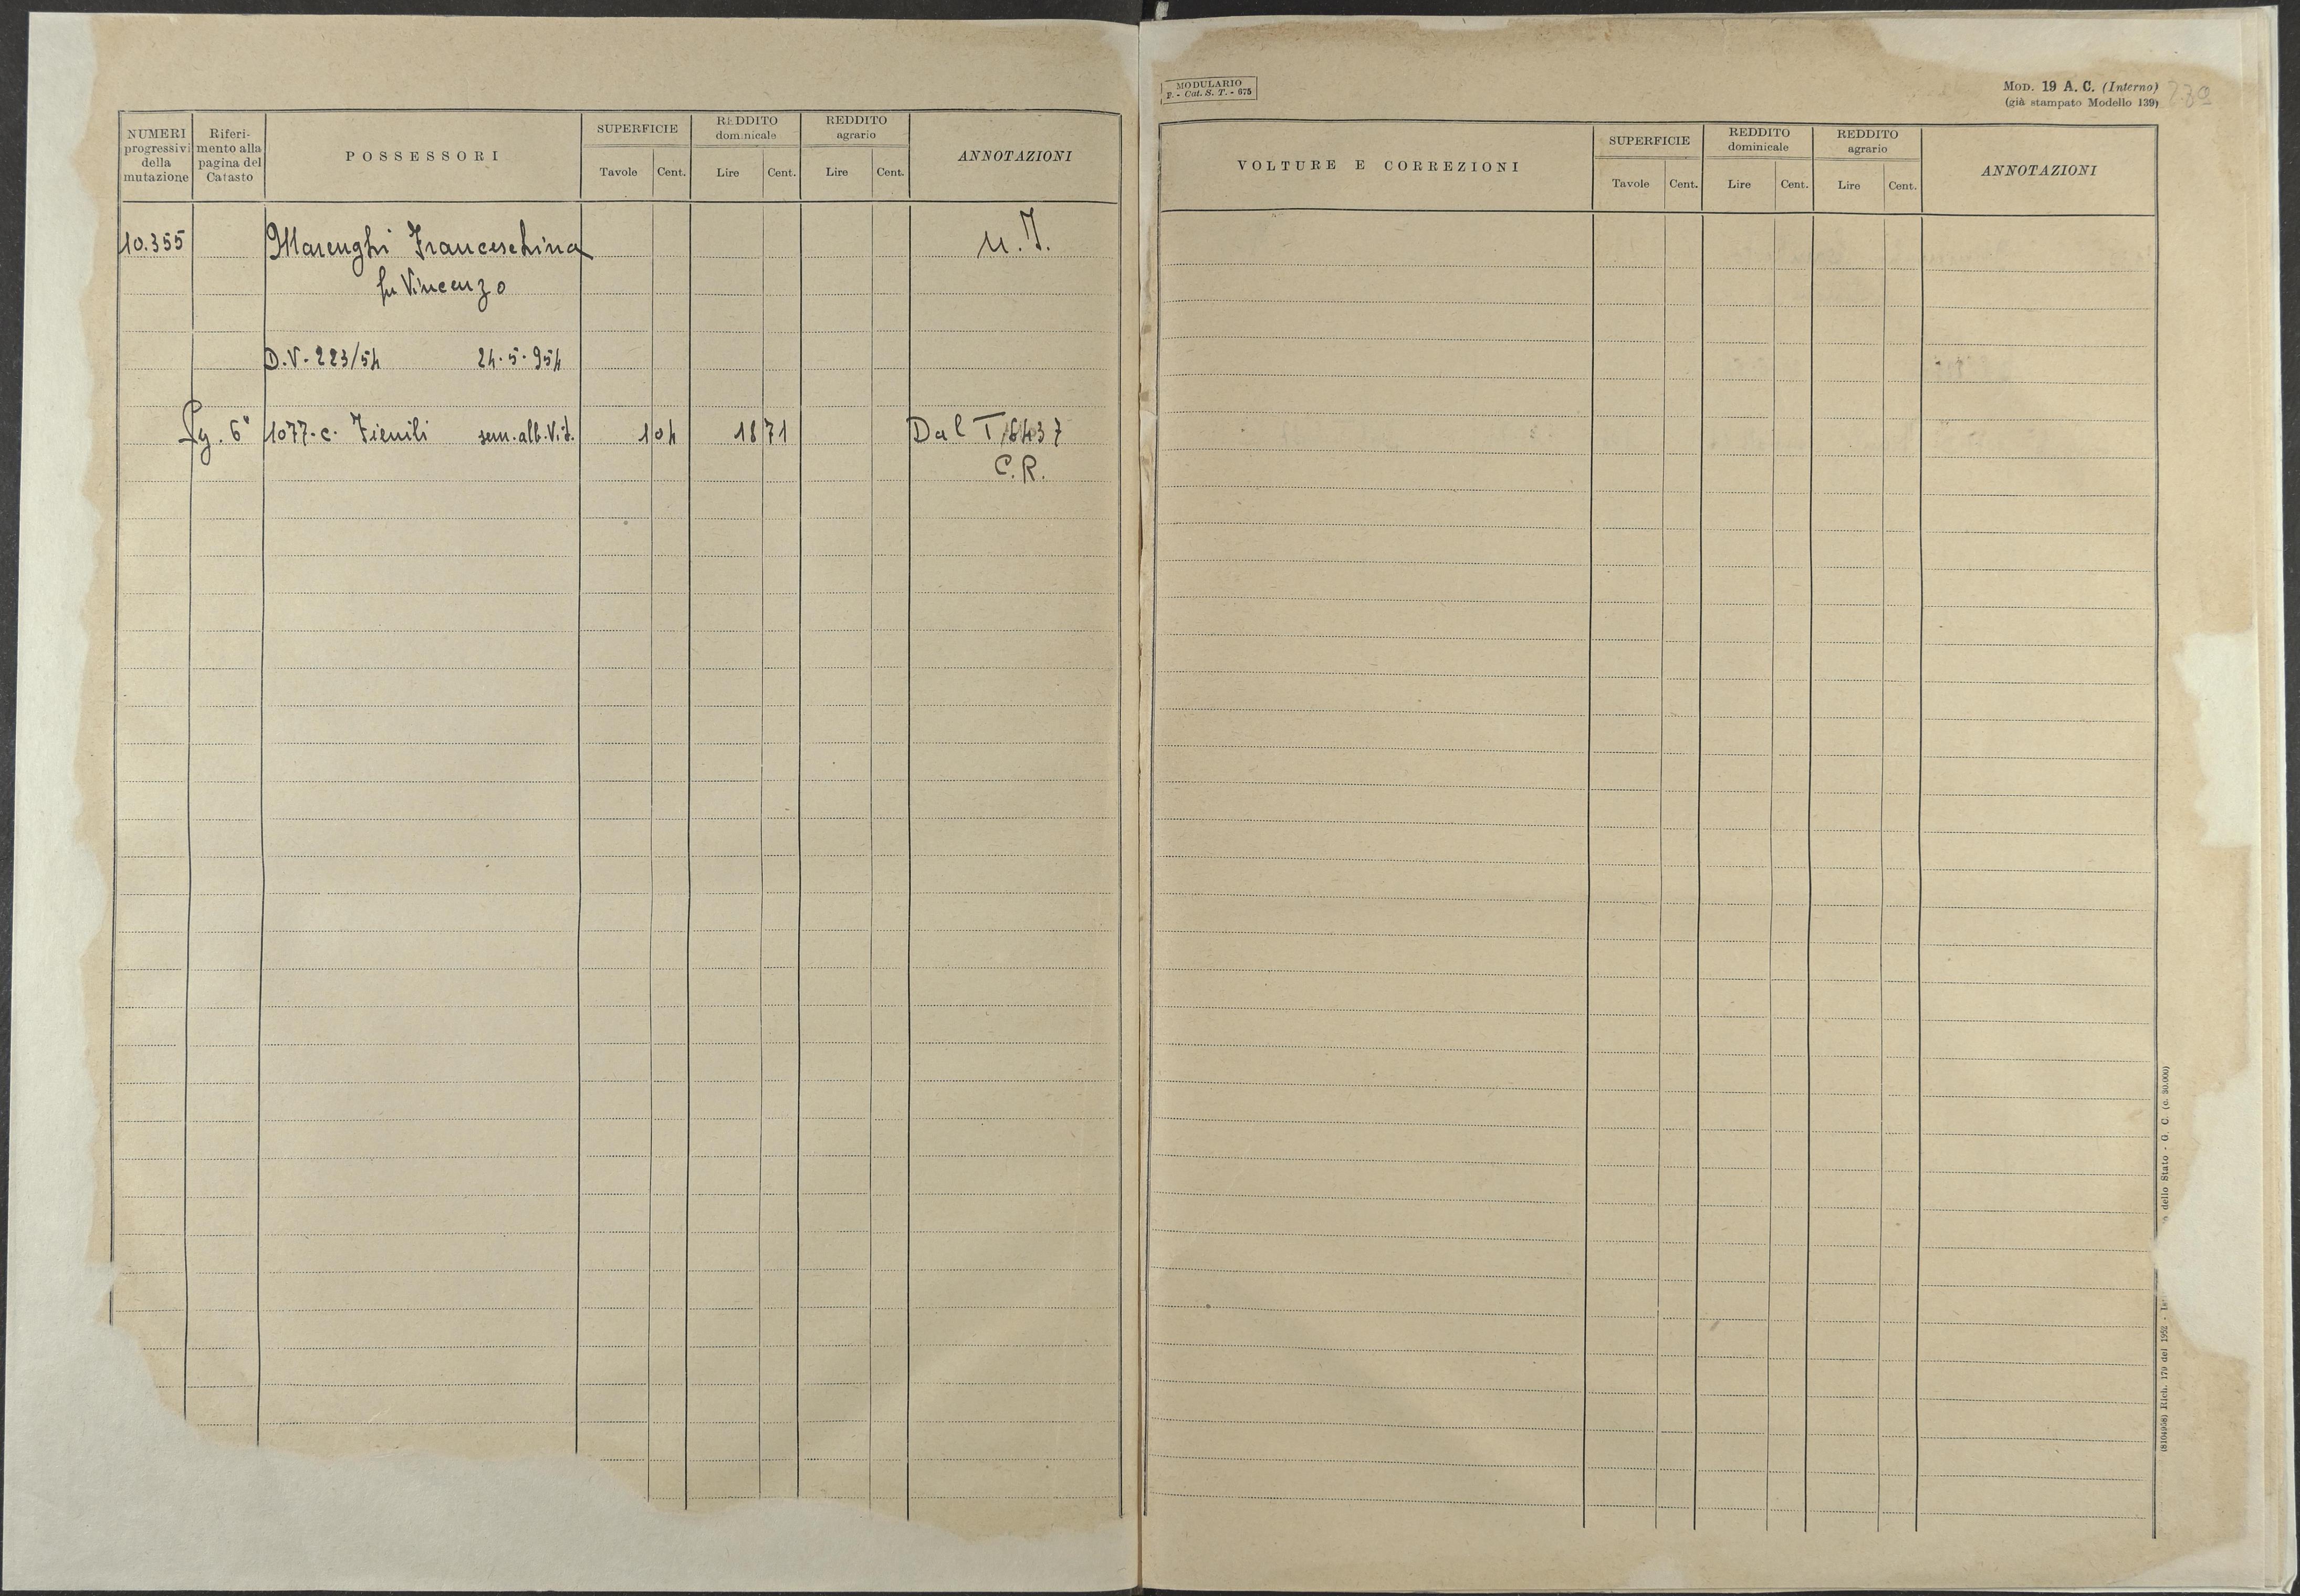 NUMERI progressivi della mutazione
Riferimento alla pagina del Catasto
POSSESSORI
SUPERFICIE
Tavole Cent.
REDDITO dominicale
Lire Cent.
REDDITO agrario
Lire Cent.
ANNOTAZIONI
10.355 Marenghi Franceschina u.T.
fu Vincenzo
D.V. 223/54 24-5-954
Pg. 6" 1077-c. Fienili sem.alb.Vit. 1 04 18 71 Dal T 6437
C.R.
MODULARIO
F. - Cat. S. T. - 675
MOD. 19 A. C. (Interno)
(già stampato Modello 139)
VOLTURE E CORREZIONI
SUPERFICIE
Tavole Cent.
REDDITO dominicale
Lire Cent.
REDDITO agrario
Lire Cent.
ANNOTAZIONI
(8104958) Rich. 179 del 1952 - Ist
dello Stato - G. C. (c. 30.000)